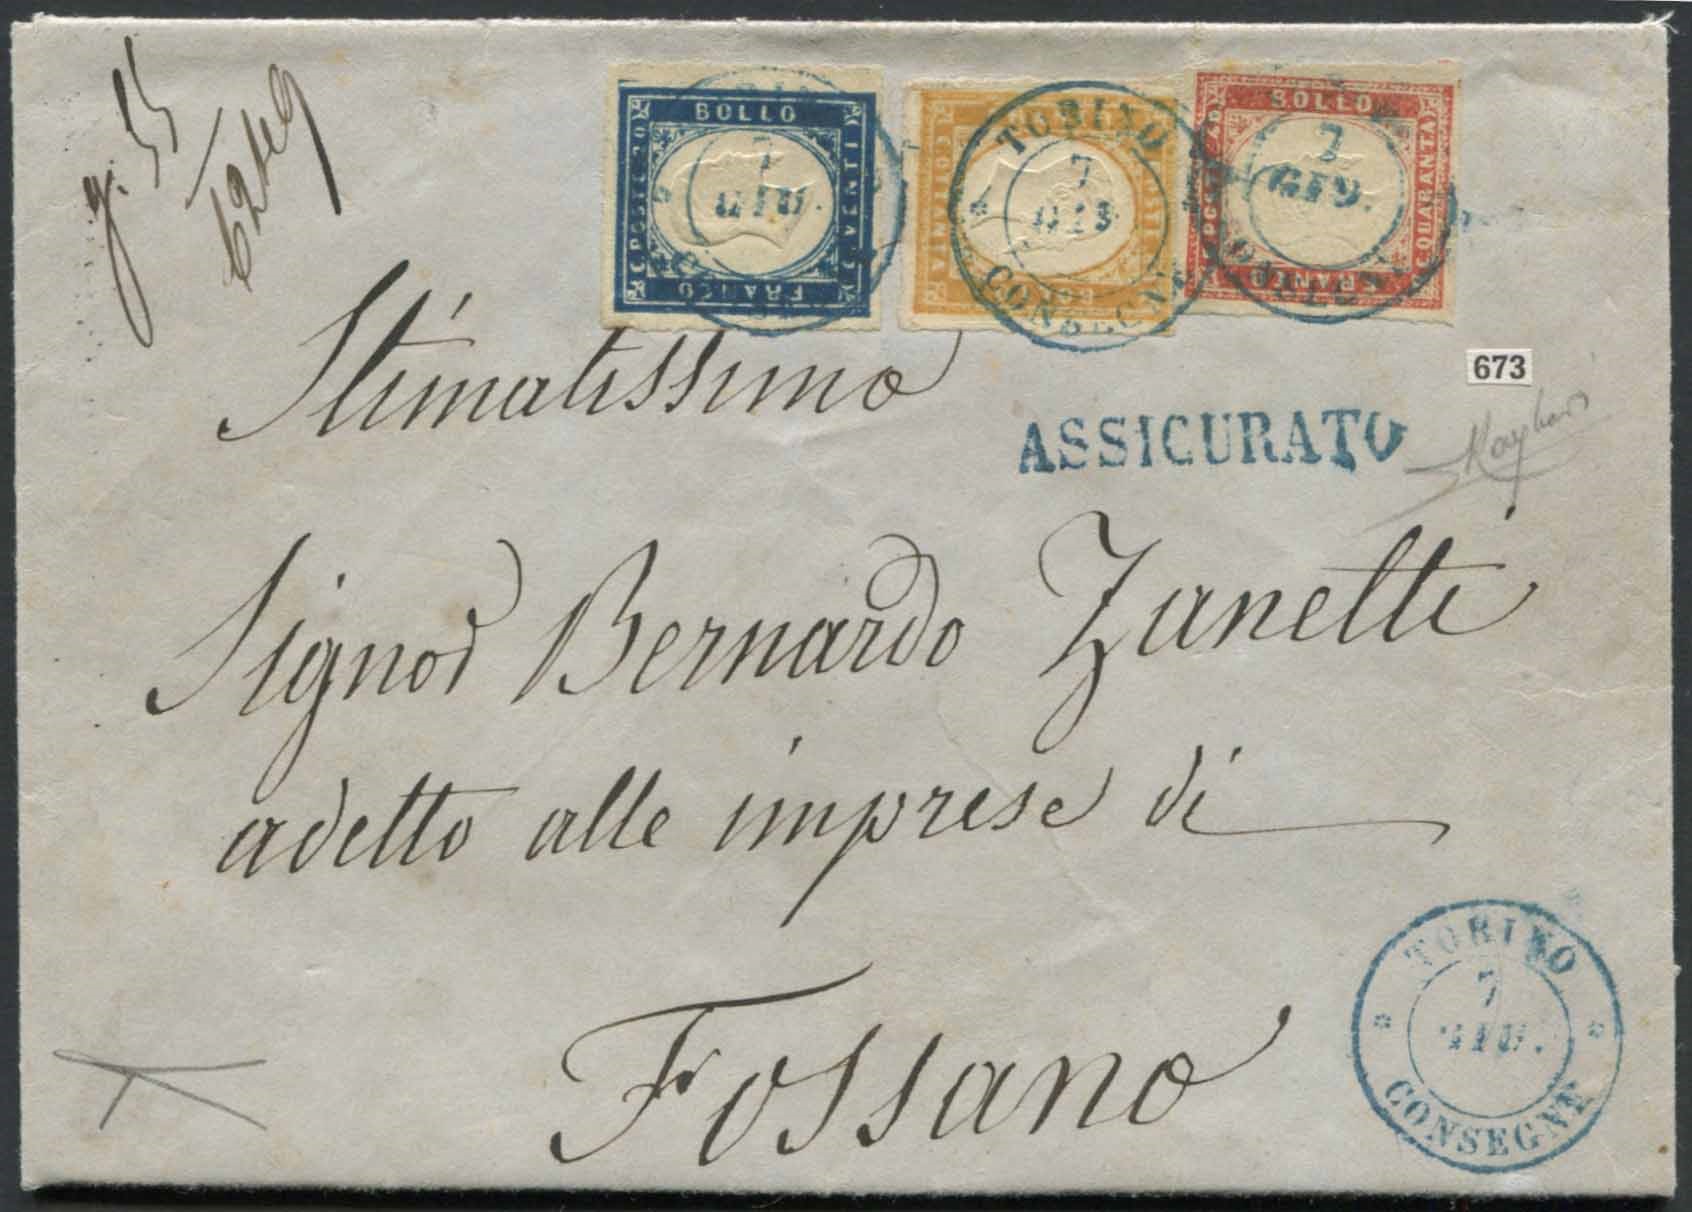 BOLLO
C. POSTE 20
C. VENTI
FRANCO
TORINO
7
GIU
CONSEGNE
C. OTTANTA
BOLLO
7
GIU.
C. POSTE 40
C. QUARANTA
FRANCO
673
Stimatissimo
ASSICURATO
Signor Bernardo Zanetti
adetto alle imprese di
Fossano
TORINO
7
GIU.
CONSEGNE